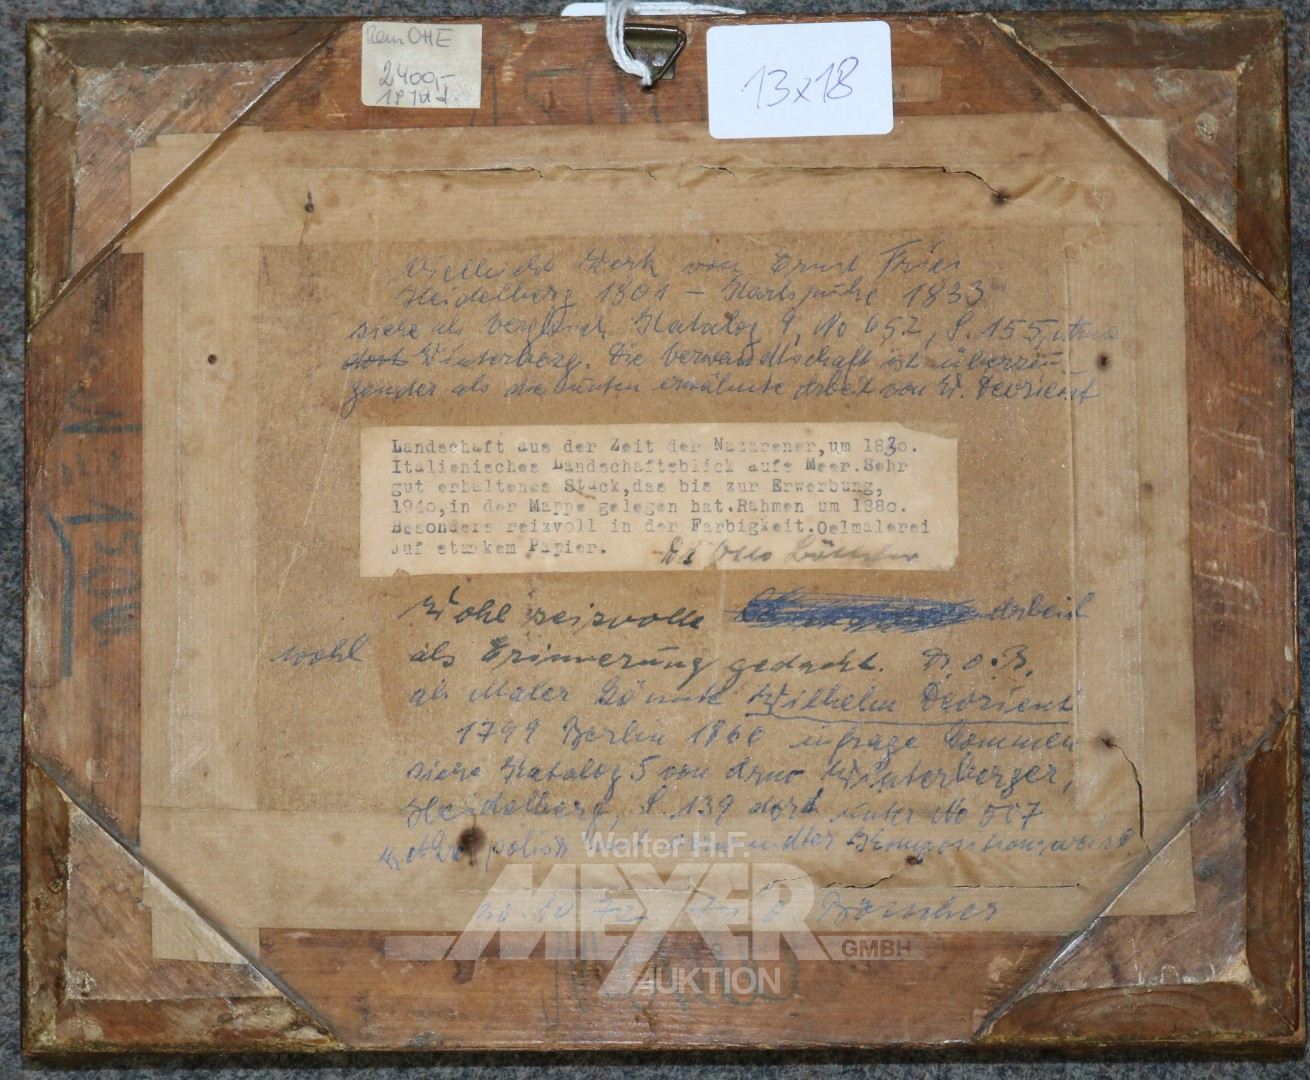 2400,-
13x18
Vielleicht Werk von Ernst Fries
Heidelberg 1801 – Karlsruhe 1833
siehe als Vergleich Katalog 9, No 652, S. 155,
dort Winterberg. Die Verwandtschaft ist überzeu-
gender als die unten erwähnte Arbeit von W. Devrient
Landschaft aus der Zeit der Nazarener,um 1830.
Italienisches Landschaftsblick aufs Meer.Sehr
gut erhaltenes Stück,das bis zur Erwerbung,
1940,in der Mappe gelegen hat.Rahmen um 1880.
Besonders reizvoll in der Farbigkeit.Oelmalerei
auf starkem Papier.
Dr Otto Böttcher
Wohl reizvolle Arbeit
wohl als Erinnerung gedacht. D. O. B.
als Maler könnte Wilhelm Devrient
1799 Berlin 1866 infrage kommen
siehe Katalog 5 von Arno Winterberger,
Heidelberg, S. 139 dort unter No 557
Kompositionsweise
Walter H.F.
MEYER
GMBH
AUKTION